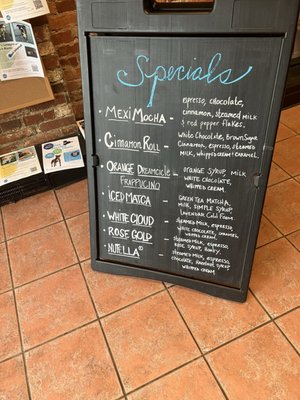 Specials
- MEXIMOCHA
espresso, chocolate,
cinnamon, steamed milk
& red pepper flakes.
- CINNAMON ROLL
White Chocolate, Brown Sugar
Cinnamon, espresso,
Milk, whipped cream & caramel
- ORANGE Dreamcicle
FRAPPUCINO
orange syrup, milk
White chocolate,
Whipped cream
- ICED MATCA
Green Tea Matca
Milk, Simple Syrup
Cold Foam
- WHITE CLOUD
Steamed Milk, espresso
White chocolate, caramel
whipped cream
- ROSE GOLD
Steamed Milk, espresso
rose syrup, honey
- NUTELLA
Steamed milk, espresso
chocolate, hazelnut syrup
whipped cream